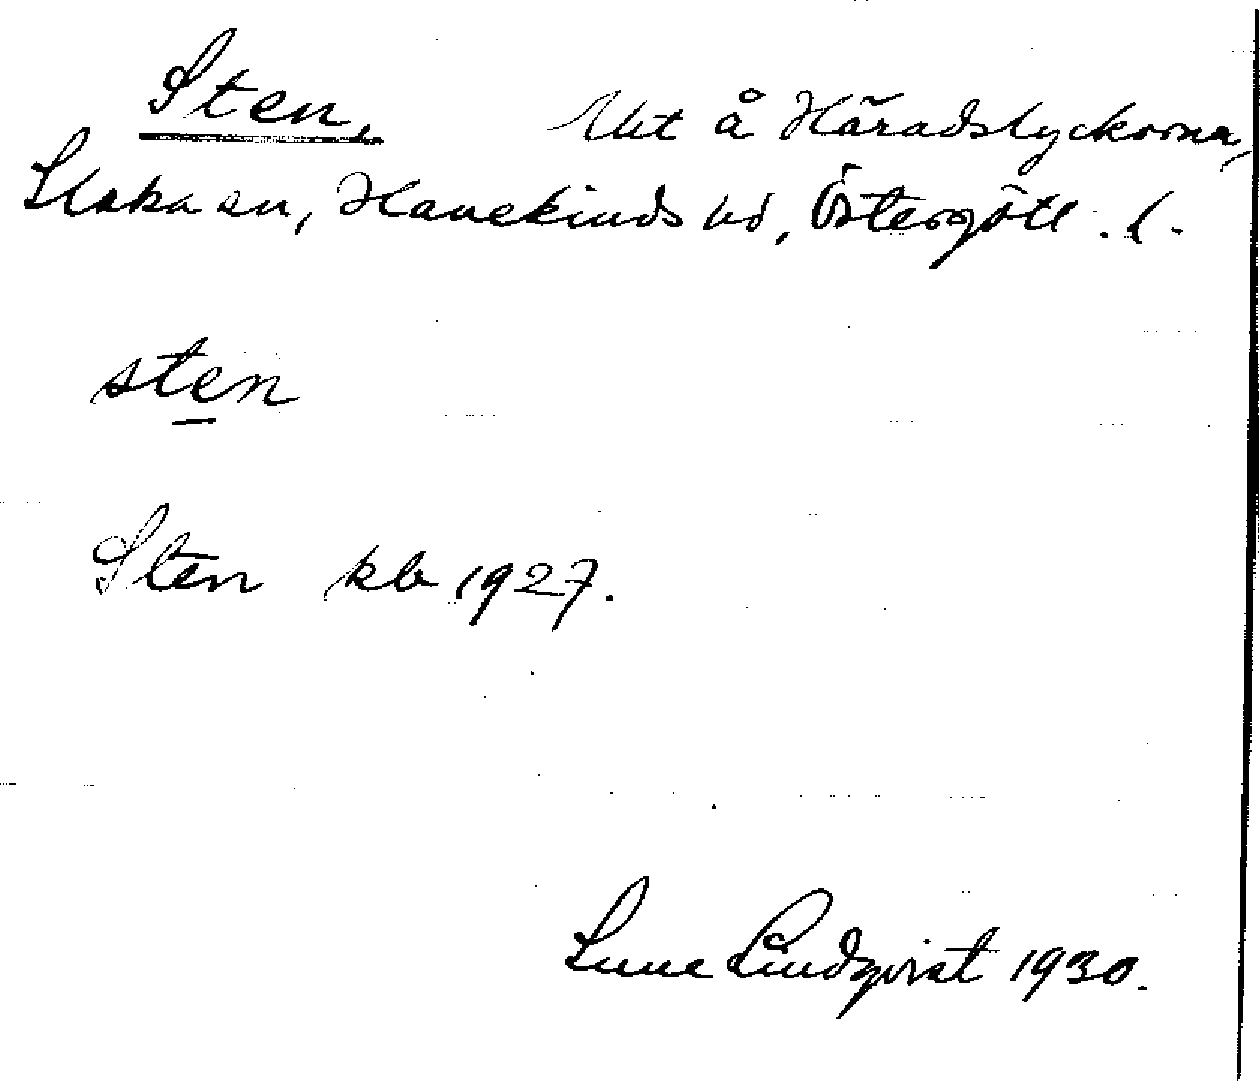 Sten, Utt å Häradslyckorna,
Slaka sn, Hanekinds hd, Östergötl. l.
sten
Sten kb 1927.
Sune Lindqvist 1930.